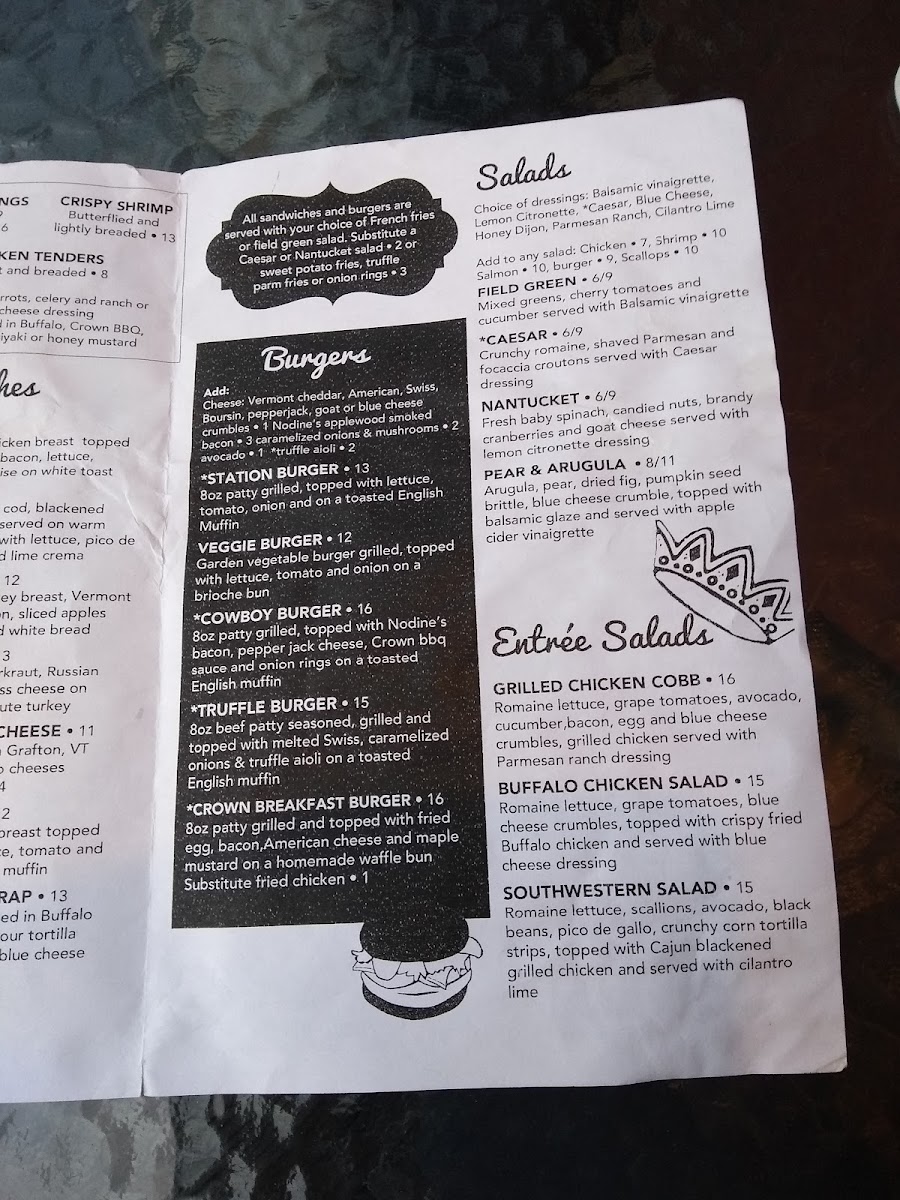 NGS
9
6
CRISPY SHRIMP
Butterflied and
lightly breaded • 13
KEN TENDERS
t and breaded • 8
rrots, celery and ranch or
cheese dressing
d in Buffalo, Crown BBQ,
iyaki or honey mustard
hes
icken breast topped
bacon, lettuce,
ise on white toast
cod, blackened
served on warm
with lettuce, pico de
d lime crema
12
ey breast, Vermont
on, sliced apples
d white bread
3
rkraut, Russian
ss cheese on
ute turkey
CHEESE • 11
Grafton, VT
o cheeses
4
2
breast topped
ce, tomato and
muffin
RAP • 13
ed in Buffalo
our tortilla
blue cheese
All sandwiches and burgers are
served with your choice of French fries
or field green salad. Substitute a
Caesar or Nantucket salad • 2 or
sweet potato fries, truffle
parm fries or onion rings • 3
Burgers
Add:
Cheese: Vermont cheddar, American, Swiss,
Boursin, pepperjack, goat or blue cheese
crumbles • 1 Nodine's applewood smoked
bacon • 3 caramelized onions & mushrooms • 2
avocado • 1 *truffle aioli • 2
*STATION BURGER • 13
8oz patty grilled, topped with lettuce,
tomato, onion and on a toasted English
Muffin
VEGGIE BURGER • 12
Garden vegetable burger grilled, topped
with lettuce, tomato and onion on a
brioche bun
*COWBOY BURGER • 16
8oz patty grilled, topped with Nodine's
bacon, pepper jack cheese, Crown bbq
sauce and onion rings on a toasted
English muffin
*TRUFFLE BURGER • 15
8oz beef patty seasoned, grilled and
topped with melted Swiss, caramelized
onions & truffle aioli on a toasted
English muffin
*CROWN BREAKFAST BURGER • 16
8oz patty grilled and topped with fried
egg, bacon,American cheese and maple
mustard on a homemade waffle bun
Substitute fried chicken • 1
Salads
Choice of dressings: Balsamic vinaigrette,
Lemon Citronette, *Caesar, Blue Cheese,
Honey Dijon, Parmesan Ranch, Cilantro Lime
Add to any salad: Chicken • 7, Shrimp • 10
Salmon • 10, burger • 9, Scallops • 10
FIELD GREEN • 6/9
Mixed greens, cherry tomatoes and
cucumber served with Balsamic vinaigrette
*CAESAR • 6/9
Crunchy romaine, shaved Parmesan and
focaccia croutons served with Caesar
dressing
NANTUCKET • 6/9
Fresh baby spinach, candied nuts, brandy
cranberries and goat cheese served with
lemon citronette dressing
PEAR & ARUGULA • 8/11
Arugula, pear, dried fig, pumpkin seed
brittle, blue cheese crumble, topped with
balsamic glaze and served with apple
cider vinaigrette
Entrée Salads
GRILLED CHICKEN COBB • 16
Romaine lettuce, grape tomatoes, avocado,
cucumber,bacon, egg and blue cheese
crumbles, grilled chicken served with
Parmesan ranch dressing
BUFFALO CHICKEN SALAD • 15
Romaine lettuce, grape tomatoes, blue
cheese crumbles, topped with crispy fried
Buffalo chicken and served with blue
cheese dressing
SOUTHWESTERN SALAD • 15
Romaine lettuce, scallions, avocado, black
beans, pico de gallo, crunchy corn tortilla
strips, topped with Cajun blackened
grilled chicken and served with cilantro
lime